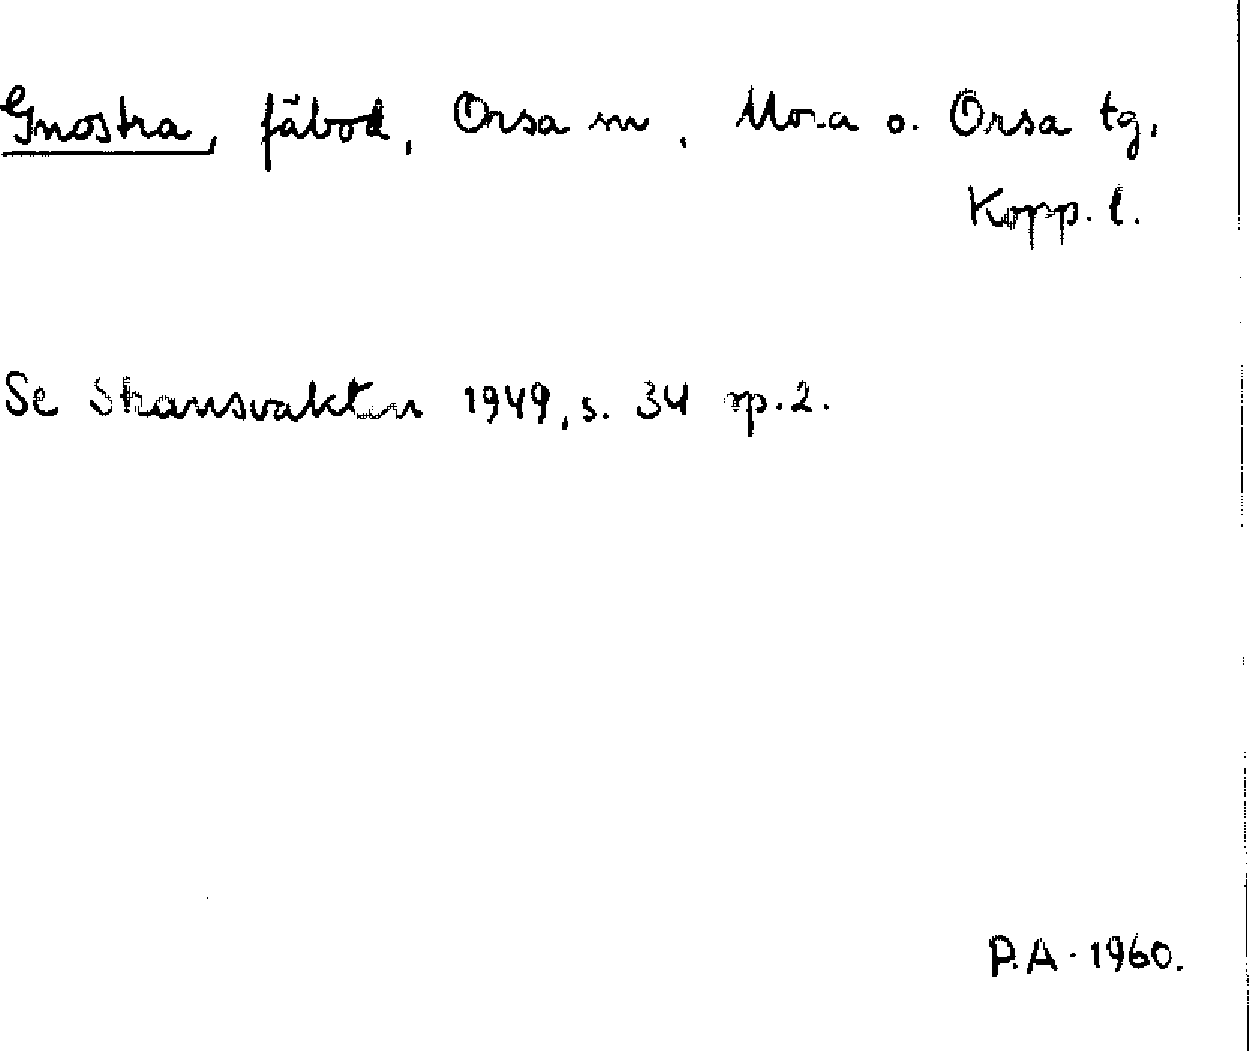 Gnostra, fäbod, Orsa sn, Mora o. Orsa tg,
Kopp. l.
Se Skansvakten 1949, s. 34 sp. 2.
P.A. 1960.